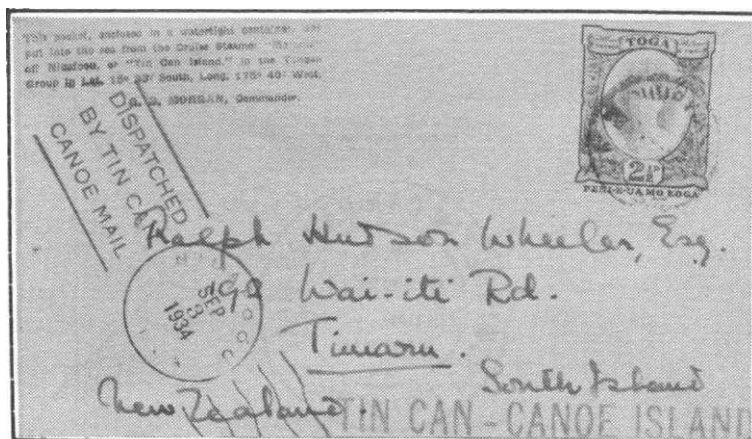 This packet, enclosed in a watertight container, was
put into the sea from the Cruise Steamer
off Niuafoou, or "Tin Can Island," in the Tongan
Group in Lat. 15° 33' South, Long. 175° 40' West.
MORGAN, Commander.
DISPATCHED
BY TIN CAN
CANOE MAIL
TOGA
2d
PENI-E-UA MO EOGA
Ralph Hudson Wheeler, Esq.
Wai-iti Rd.
Timaru.
South Island
New Zealand.
SEP
3
1934
TIN CAN - CANOE ISLAND